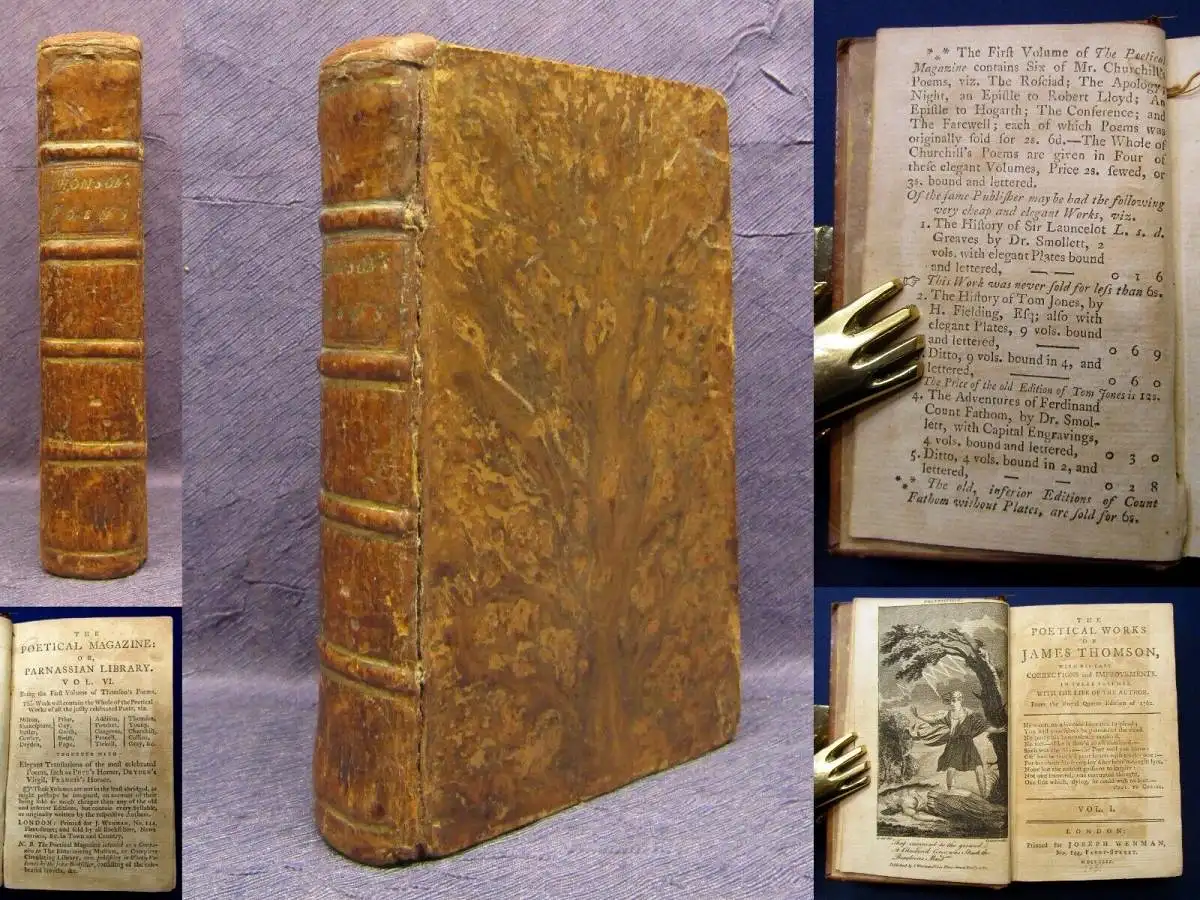 THOMSON'S
POEMS
THE
POETICAL MAGAZINE:
OR,
PARNASSIAN LIBRARY.
VOL. VI.
Being the First Volume of Thomson's Poems.
This Work will contain the Whole of the Poetical
Works of all the justly celebrated Poets, viz.
Milton, Prior, Addison, Thomson,
Shakespeare, Gay, Young,
Butler, Garth, Congreve, Churchill,
Cowley, Swift, Parnell,
Dryden, Pope, Tickell, Gray, &c.
TOGETHER WITH
Elegant Translations of the most celebrated
Poems, such as POPE's Homer, DRYDEN's
Virgil, FRANCIS's Horace.
These Volumes are not in the least abridged, as
might perhaps be imagined, on account of their
being sold so much cheaper than any of the old
and inferior Editions, but contain every Syllable,
as originally written by the respective Authors.
LONDON: Printed for J. WENMAN, No. 144,
Fleet-street; and sold by all Booksellers, News
carriers, &c. in Town and Country.
N. B. The Poetical Magazine
to The Entertaining Museum, or Complete
Circulating Library,
consisting of the cele-
brated Novels, &c.
*** The First Volume of The Poetical
Magazine contains Six of Mr. Churchill's
Poems, viz. The Rosciad; The Apology;
Night, an Epistle to Robert Lloyd; An
Epistle to Hogarth; The Conference; and
The Farewell; each of which Poems was
originally sold for 2s. 6d.—The Whole of
Churchill's Poems are given in Four of
these elegant Volumes, Price 2s. sewed, or
3s. bound and lettered.
Of the same Publisher may be had the following
very cheap and elegant Works, viz.
1. The History of Sir Launcelot L. s. d.
Greaves by Dr. Smollett, 2
vols. with elegant Plates bound
and lettered, — — 0 1 6
☞ This Work was never sold for less than 6s.
2. The History of Tom Jones, by
H. Fielding, Esq; also with
elegant Plates, 9 vols. bound
and lettered, — 0 6 9
Ditto, 9 vols. bound in 4, and
lettered, — 0 6 0
The Price of the old Edition of Tom Jones is 12s.
4. The Adventures of Ferdinand
Count Fathom, by Dr. Smol-
lett, with Capital Engravings,
4 vols. bound and lettered, 0 3 0
5. Ditto, 4 vols. bound in 2, and
lettered, — — 0 2 8
*** The old, inferior Editions of Count
Fathom without Plates, are sold for 6s.
THE
POETICAL WORKS
OF
JAMES THOMSON,
WITH HIS LAST
CORRECTIONS and IMPROVEMENTS.
IN THREE VOLUMES.
WITH THE LIFE OF THE AUTHOR.
From the Royal Quarto Edition of 1762.
VOL. I.
LONDON:
Printed for JOSEPH WENMAN,
No. 144, FLEET-STREET.